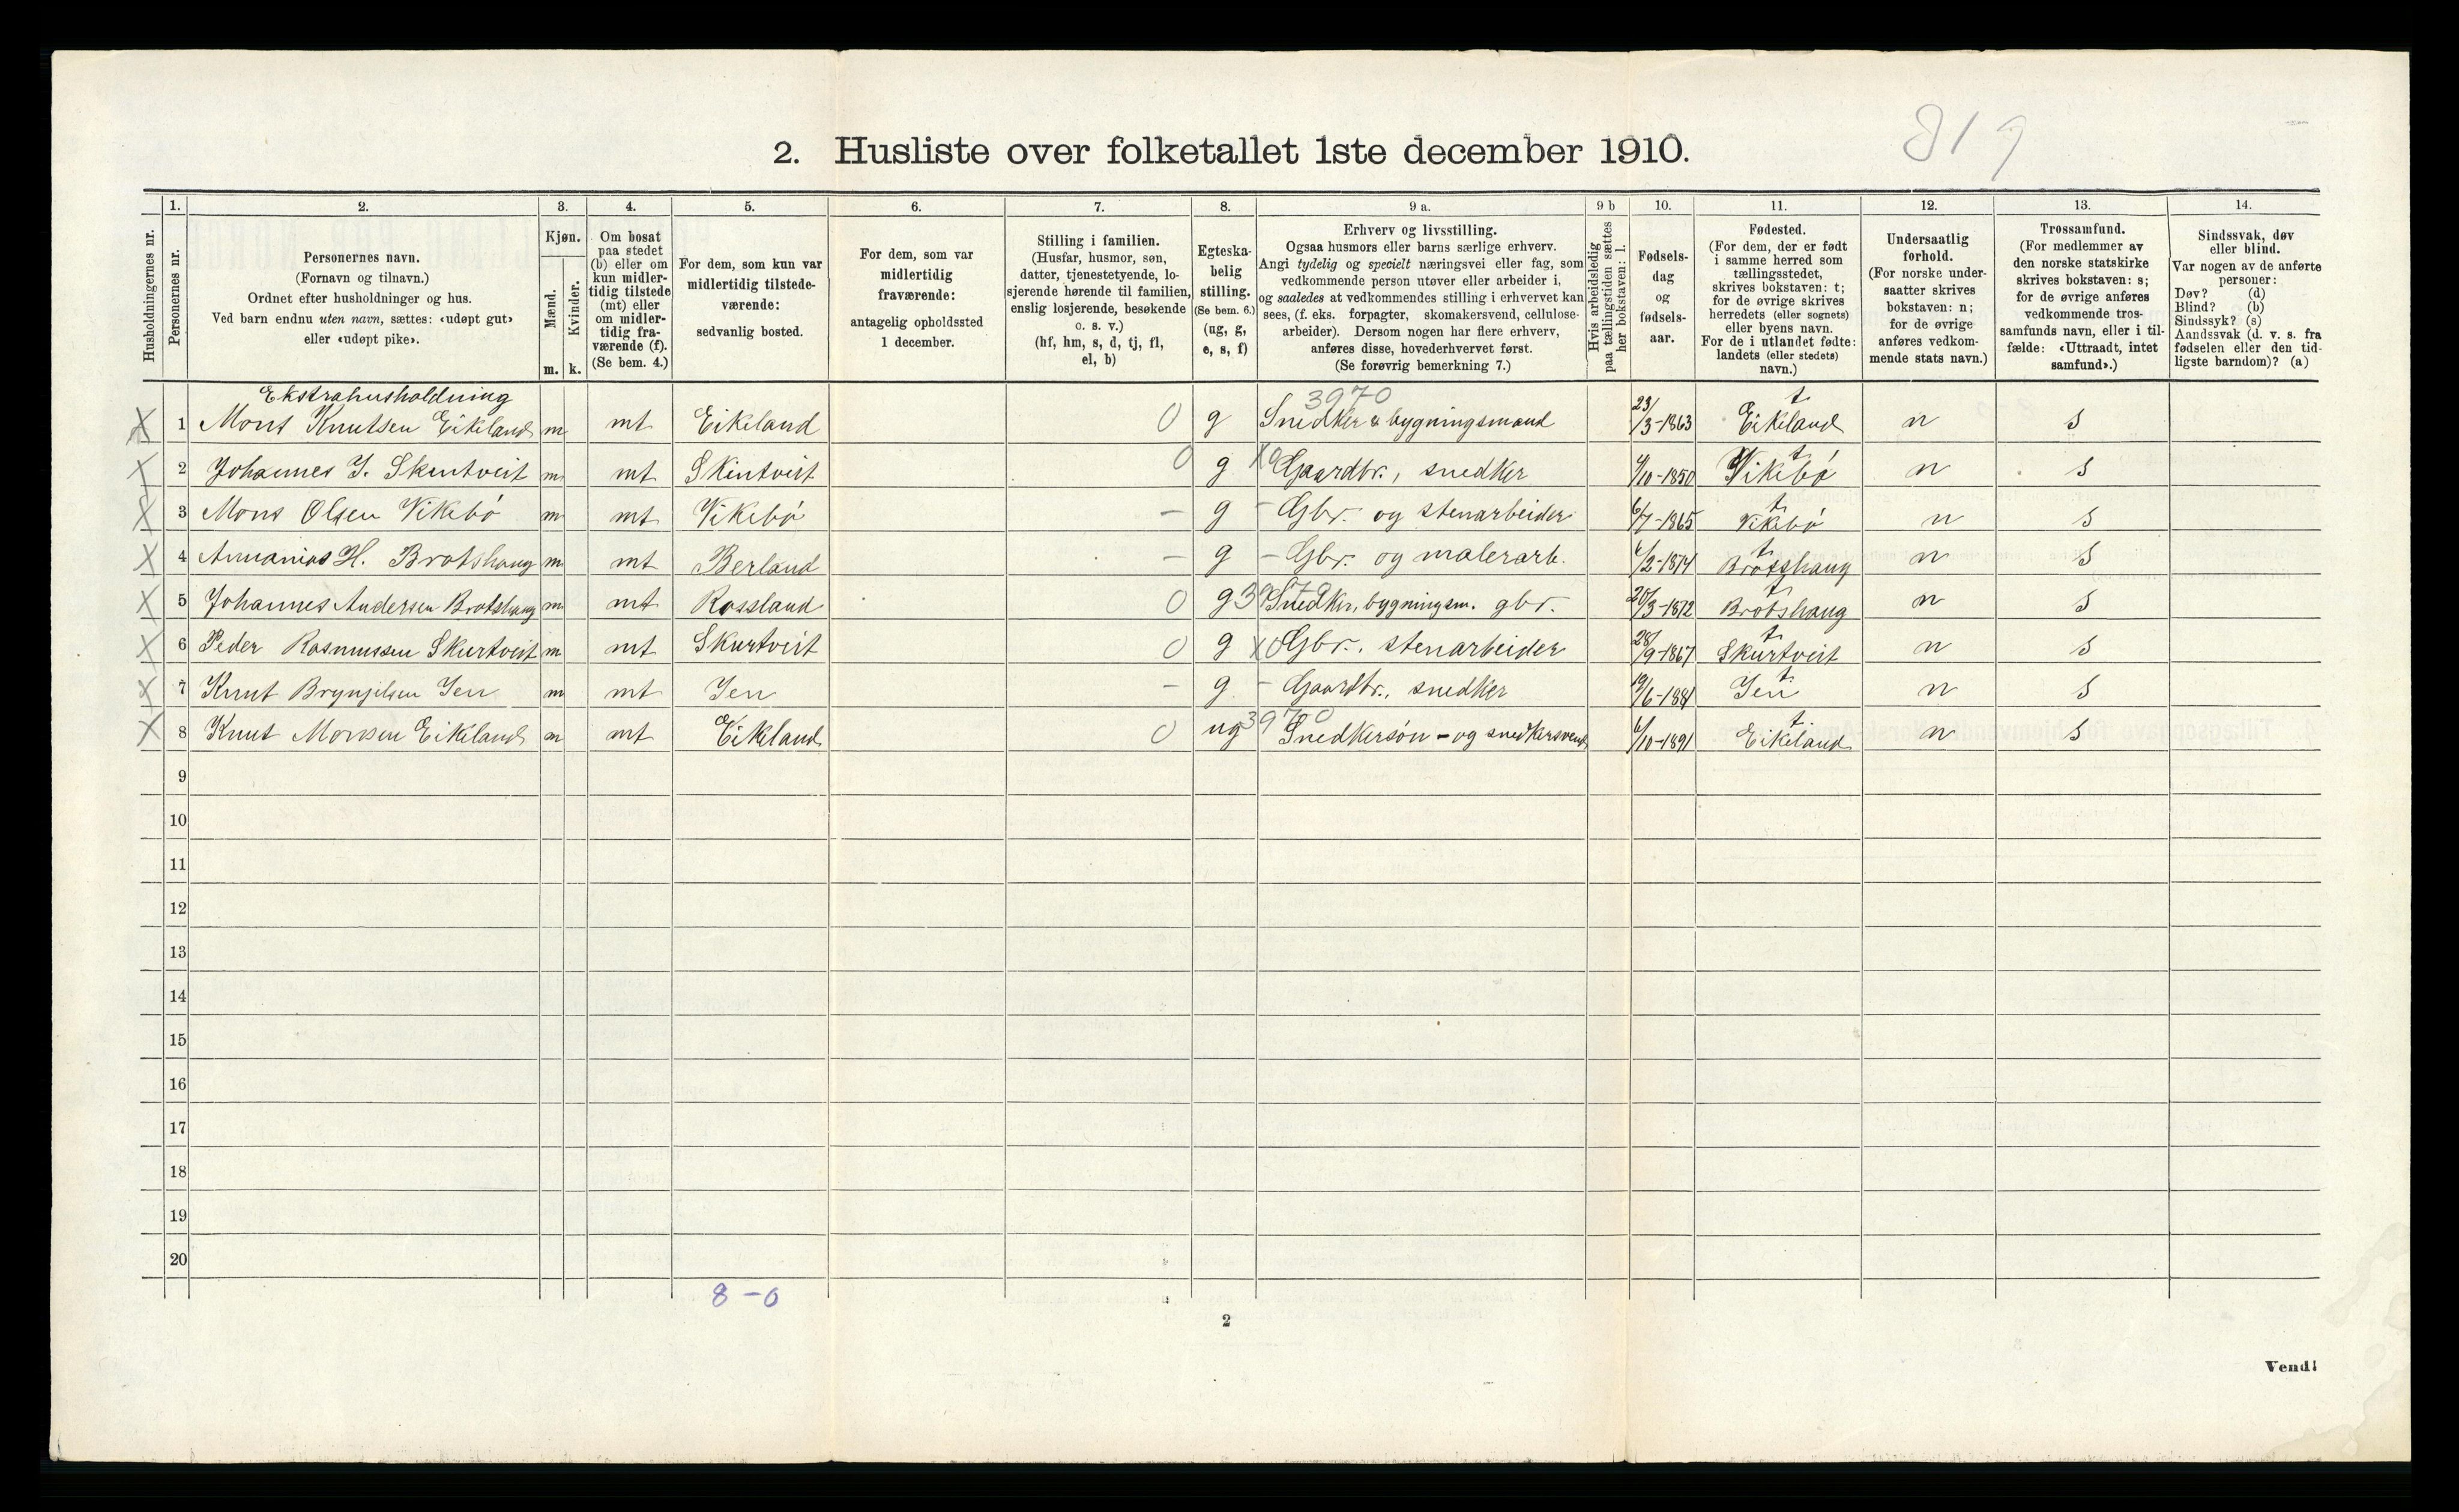 819
2. Husliste over folketallet 1ste december 1910.
Husholdningernes nr.
1.
Personernes nr.
2.
Personernes navn.
(Fornavn og tilnavn.)
Ordnet efter husholdninger og hus.
Ved barn endnu uten navn, sættes: «udøpt gut»
eller «udøpt pike».
3.
Kjøn.
Mænd.
Kvinder.
m. k.
4.
Om bosat
paa stedet
(b) eller om
kun midler-
tidig tilstede
(mt) eller
om midler-
tidig fra-
værende (f).
(Se bem. 4.)
5.
For dem, som kun var
midlertidig tilstede-
værende:
sedvanlig bosted.
6.
For dem, som var
midlertidig
fraværende:
antagelig opholdssted
1 december.
7.
Stilling i familien.
(Husfar, husmor, søn,
datter, tjenestetyende, lo-
sjerende hørende til familien,
enslig losjerende, besøkende
o. s. v.)
(hf, hm, s, d, tj, fl,
el, b)
8.
Egteska-
belig
stilling.
(Se bem. 6.)
(ug, g,
e, s, f)
9 a.
Erhverv og livsstilling.
Ogsaa husmors eller barns særlige erhverv.
Angi tydelig og specielt næringsvei eller fag, som
vedkommende person utøver eller arbeider i,
og saaledes at vedkommendes stilling i erhvervet kan
sees, (f. eks. forpagter, skomakersvend, cellulose-
arbeider). Dersom nogen har flere erhverv,
anføres disse, hovederhvervet først.
(Se forøvrig bemerkning 7.)
9 b
Hvis arbeidsledig
paa tællingstiden sættes
her bokstaven: l.
10.
Fødsels-
dag
og
fødsels-
aar.
11.
Fødested.
(For dem, der er født
i samme herred som
tællingsstedet,
skrives bokstaven: t;
for de øvrige skrives
herredets (eller sognets)
eller byens navn.
For de i utlandet fødte:
landets (eller stedets)
navn.)
12.
Undersaatlig
forhold.
(For norske under-
saatter skrives
bokstaven: n;
for de øvrige
anføres vedkom-
mende stats navn.)
13.
Trossamfund.
(For medlemmer av
den norske statskirke
skrives bokstaven: s;
for de øvrige anføres
vedkommende tros-
samfunds navn, eller i til-
fælde: «Uttraadt, intet
samfund».)
14.
Sindssvak, døv
eller blind.
Var nogen av de anførte
personer:
Døv? (d)
Blind? (b)
Sindssyk? (s)
Aandssvak (d. v. s. fra
fødselen eller den tid-
ligste barndom)? (a)
Ekstrahusholdning 3970 t
X 1 Mons Knutsen Eikeland m mt Eikeland 0 g Snedker & bygningsmand 23/3-1863 Eikeland n s
X 2 Johannes J. Skintveit m mt Skintveit 0 g X0 Gaardbr., snedker 4/10-1850 t Vikebø n s
X 3 Mons Olsen Vikebø m mt Vikebø – g – Gbr. og stenarbeider 6/7-1865 t Vikebø n s
X 4 Annanias H. Brotshaug m mt Berland – g – Gbr. og malerarb. 6/2-1874 t Brotshaug n s
X 5 Johannes Andersen Brotshaug m mt Rossland 0 g 3970 Snedker, bygningsm. gbr. 20/3-1872 t Brotshaug n s
X 6 Peder Rasmussen Skurtveit m mt Skurtveit 0 g X0 Gbr., stenarbeider 28/9-1867 t Skurtveit n s
X 7 Knut Brynjilsen Jen m mt Jen – g – Gaardbr., snedker 19/6-1881 t Jen n s
X 8 Knut Monsen Eikeland m mt Eikeland 0 ug 3970 Snedkersøn – og snedkersvend 6/10-1891 t Eikeland n s
9
10
11
12
13
14
15
16
17
18
19
20
8 – 0
2
Vend!